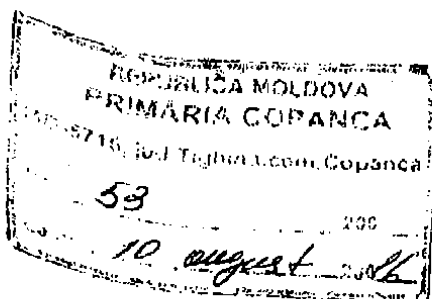 REPUBLICA MOLDOVA
PRIMĂRIA COPANCA
MD-5716, jud. Tighina, com. Copanca
53 200
10 august 200